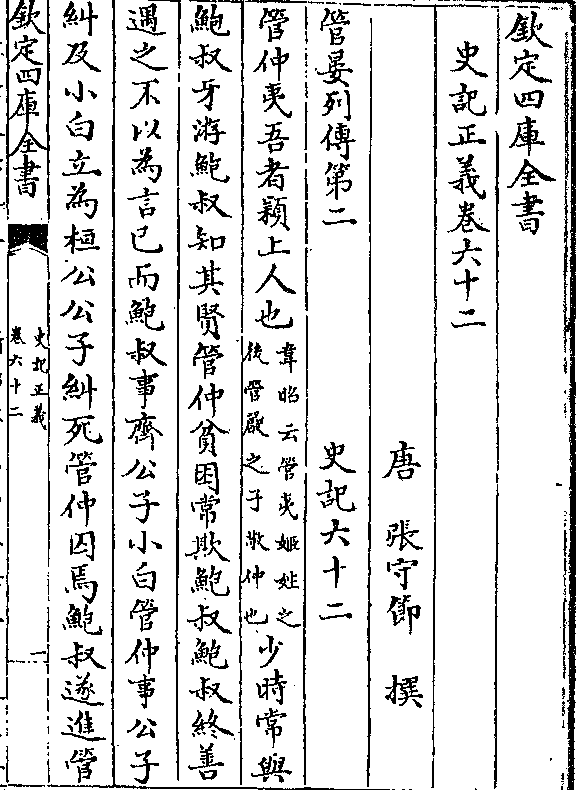 欽定四庫全書
史記正義卷六十二
唐 張守節 撰
管晏列傳第二 史記六十二
管仲夷吾者潁上人也韋昭云管夷姬姓之後管嚴之子敬仲也少時常與
鮑叔牙游鮑叔知其賢管仲貧困常欺鮑叔鮑叔終善
遇之不以為言已而鮑叔事齊公子小白管仲事公子
糾及小白立為桓公公子糾死管仲囚焉鮑叔遂進管
欽定四庫全書
史記正義
卷六十二
一